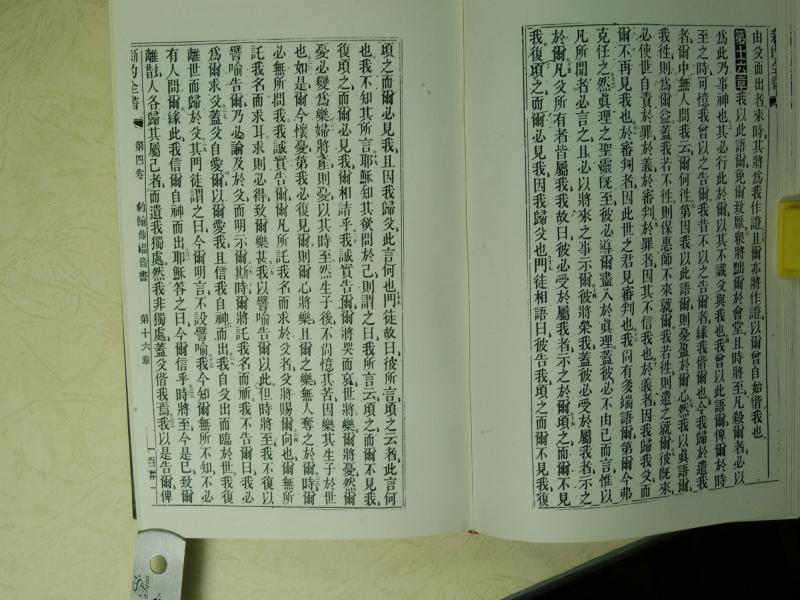 新約全書
由父而出者、來時、其將爲我作證、且爾亦將作證、以爾曾自始偕我也、
第十六章 我以此語爾、免爾致厭、衆將黜爾於會堂、且時將至、凡殺爾者、必以
爲此乃事神也、其必行此於爾、以其不識父與我也、我曾以此語爾、俾爾於時
至之時、可憶我曾以之告爾、我昔不以之告爾者、緣我偕爾也、今我歸於遣我
者、爾中無人問我云、爾何徃、第因我以此語爾、則憂盈於爾心、然我以眞語爾、
我徃則爲爾益、蓋我若不徃、則保惠師不來就爾、我若徃、則遣之就爾、彼旣來、
必使世自責於罪、於義、於審判、於罪者、因其不信我也、於義者、因我歸我父、而
爾不再見我也、於審判者、因此世之君見審判也、我尙有多端語爾、第爾今弗
克任之、然眞理之聖靈旣至、彼必導爾盡入於眞理、蓋彼必不由己而言、惟以
凡所聞者言之、且必以將來之事示爾、彼將榮我、蓋彼必受於屬我者、示之
於爾、凡父所有者皆屬我、我故曰、彼必受於屬我者、示之於爾、頃之而爾不見
我、復頃之而爾必見我、因我歸父也、門徒相語曰、彼告我、頃之而爾不見我、復
頃之而爾必見我、且因我歸父、此言何也、門徒故曰、彼所言、頃之云者、此言何
也、我不知其所言、耶穌知其欲問於己、則謂之曰、我所言云、頃之而爾不見我、
復頃之而爾必見我、爾相詰乎、我誠實告爾、爾將哭而哀、世將樂、爾將憂、然爾
憂必變爲樂、婦將產則憂、以其時至、然生子後、不尙憶其苦、因樂其生子於世
也、如是爾今懷憂、第我必復見爾、則爾心將樂、且爾之樂、無人奪之、於爾時、爾
必無所問我、我誠實告爾、爾凡所託我名而求於父者、父將賜爾、向也爾無所
託我名而求耳、求則必得、致爾樂甚、我以譬喻告爾以此、但時將至、我不復以
譬喻告爾、乃必論及於父而明示爾、斯時爾將託我名而祈、我不告爾曰、我必
爲爾求父、蓋父自愛爾、以爾愛我、且信我自神而出、我自父出而臨於世、我復
離世而歸於父、其門徒謂之曰、今爾明言、不設譬喻、我今知爾無所不知、不必
有人問爾、緣此我信爾自神而出、耶穌答之曰、今爾信乎、時將至、今是已、致爾
離散、人各歸其屬己者、而遺我獨處、然我非獨處、蓋父偕我焉、我以是告爾、俾
新約全書 第四卷 約翰傳福音書 第十六章